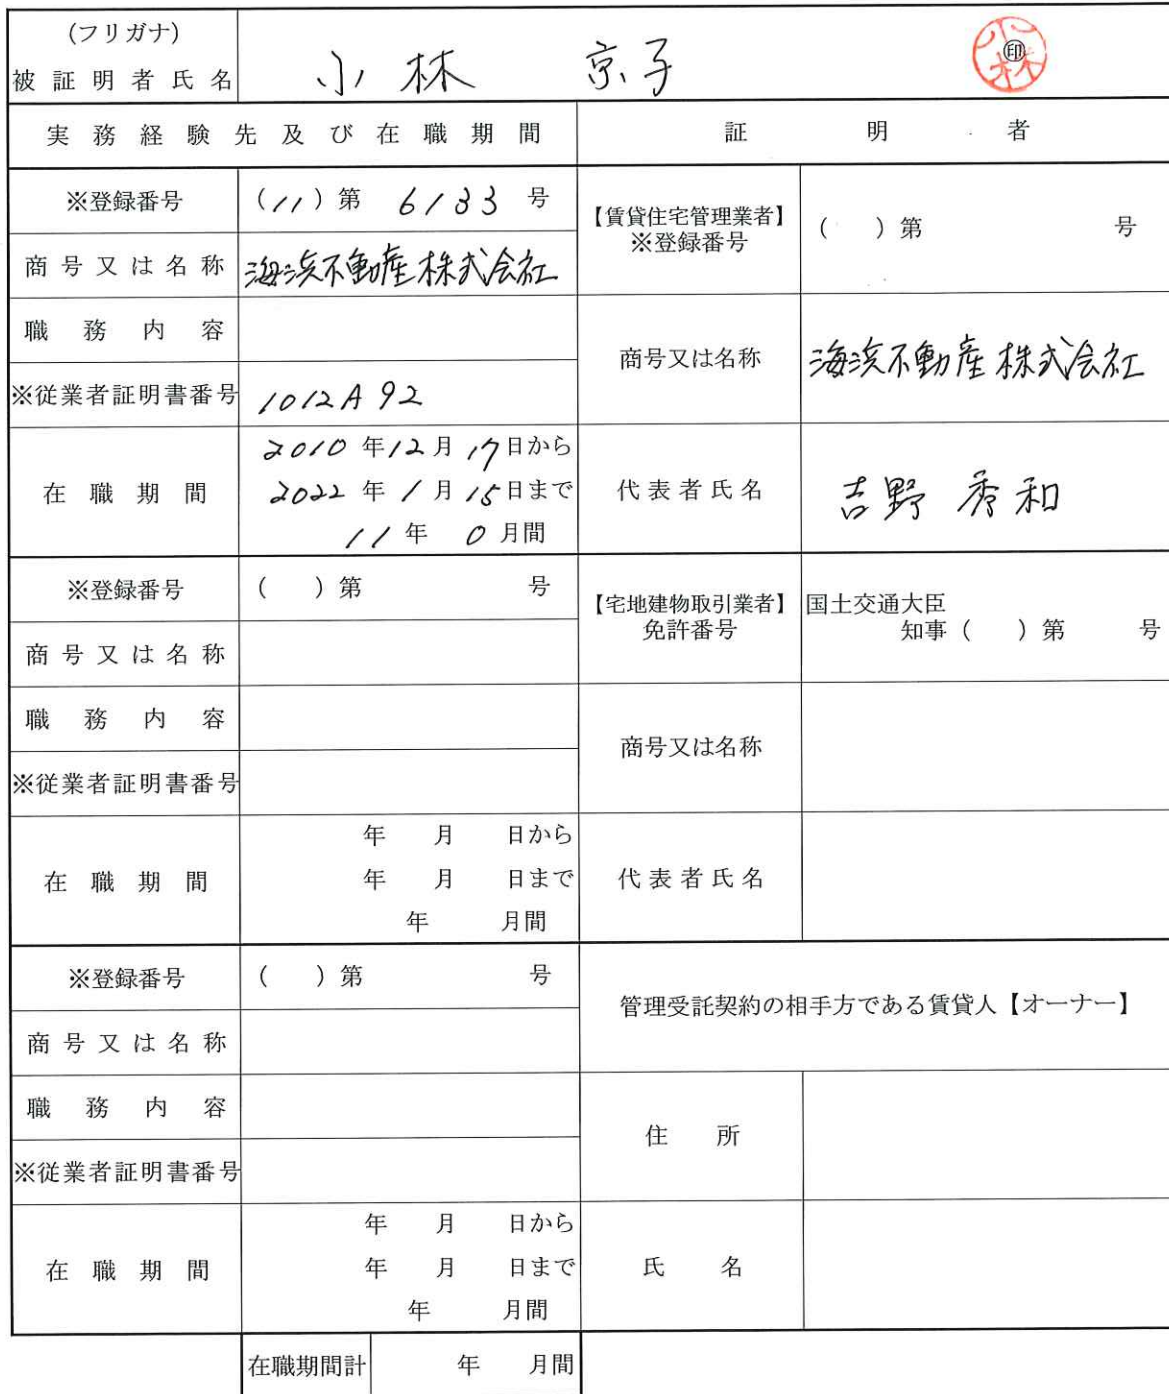 (フリガナ)
被証明者氏名
小林 京子
小林
㊞
実務経験先及び在職期間
証明者
※登録番号
(11)第 6133 号
商号又は名称
海浜不動産株式会社
職務内容
※従業者証明書番号
1012A92
在職期間
2010年12月17日から
2022年1月15日まで
11年 0月間
【賃貸住宅管理業者】
※登録番号
( )第 号
商号又は名称
海浜不動産株式会社
代表者氏名
吉野 秀和
※登録番号
( )第 号
商号又は名称
職務内容
※従業者証明書番号
在職期間
年 月 日から
年 月 日まで
年 月間
【宅地建物取引業者】
免許番号
国土交通大臣
知事( )第 号
商号又は名称
代表者氏名
※登録番号
( )第 号
商号又は名称
職務内容
※従業者証明書番号
在職期間
年 月 日から
年 月 日まで
年 月間
管理受託契約の相手方である賃貸人【オーナー】
住所
氏名
在職期間計
年 月間